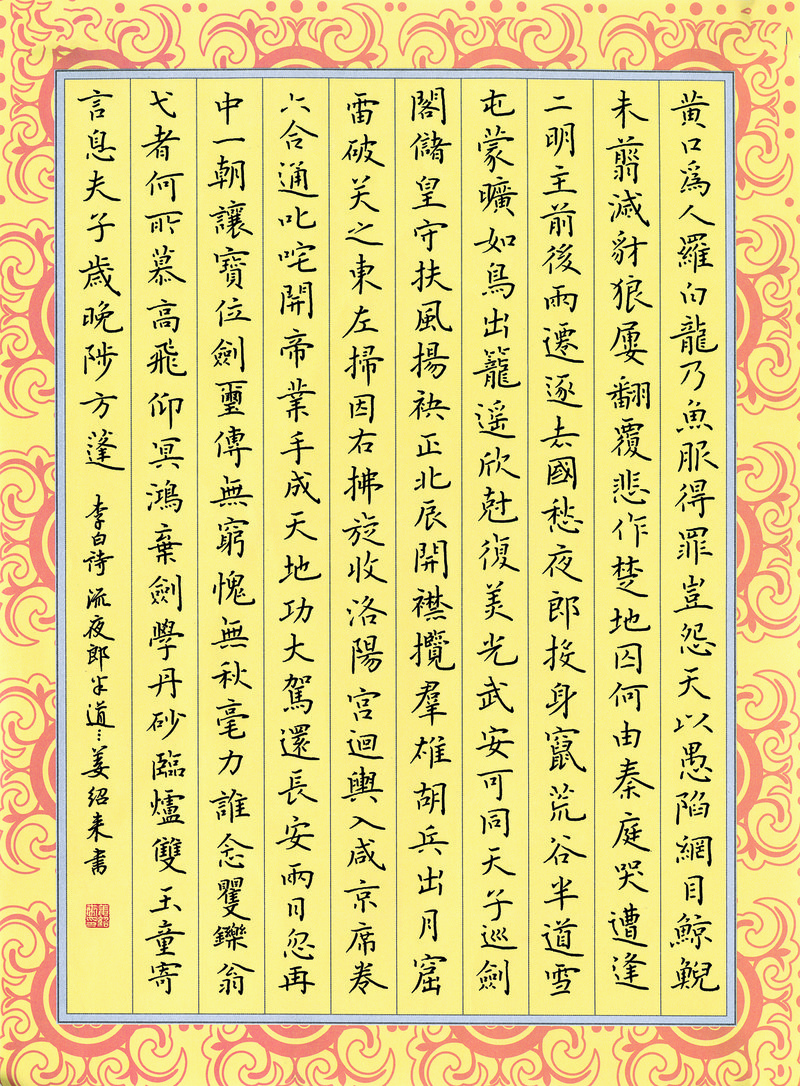 黄口爲人羅白龍乃魚服得罪豈怨天以愚陷網目鯨鯢
未翦滅豺狼屢翻覆悲作楚地囚何由秦庭哭遭逢
二明主前後兩遷逐去國愁夜郎投身竄荒谷半道雪
屯蒙曠如鳥出籠遥欣尅復美光武安可同天子巡劍
閣儲皇守扶風揚袂正北辰開襟攬羣雄胡兵出月窟
雷破关之東左掃因右拂旋收洛陽宮迴輿入咸京席卷
六合通叱咤開帝業手成天地功大駕還長安兩日忽再
中一朝讓寶位劍璽傳無窮愧無秋毫力誰念矍鑠翁
弋者何所慕高飛仰冥鴻棄劍學丹砂臨爐雙玉童寄
言息夫子歲晚陟方蓬
李白詩流夜郎半道⋮姜紹来書